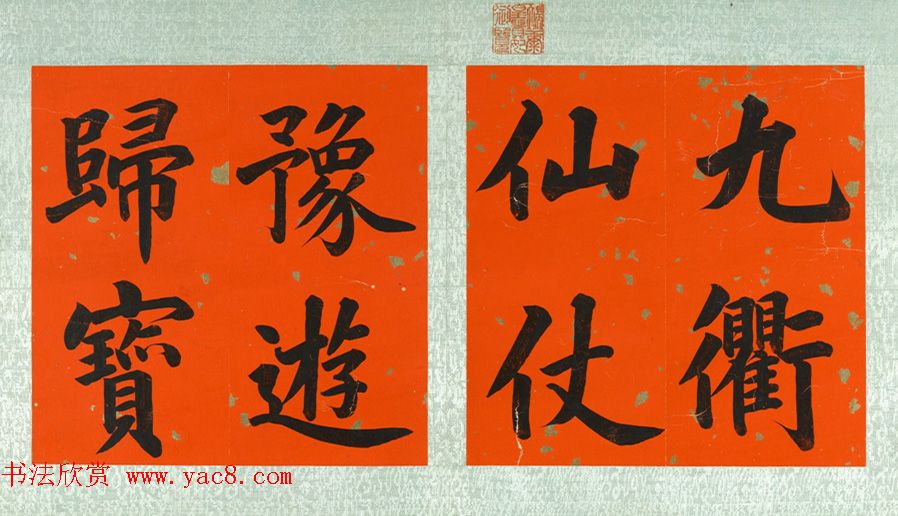 九衢
仙仗
豫遊
歸寶
书法欣赏 www.yac8.com